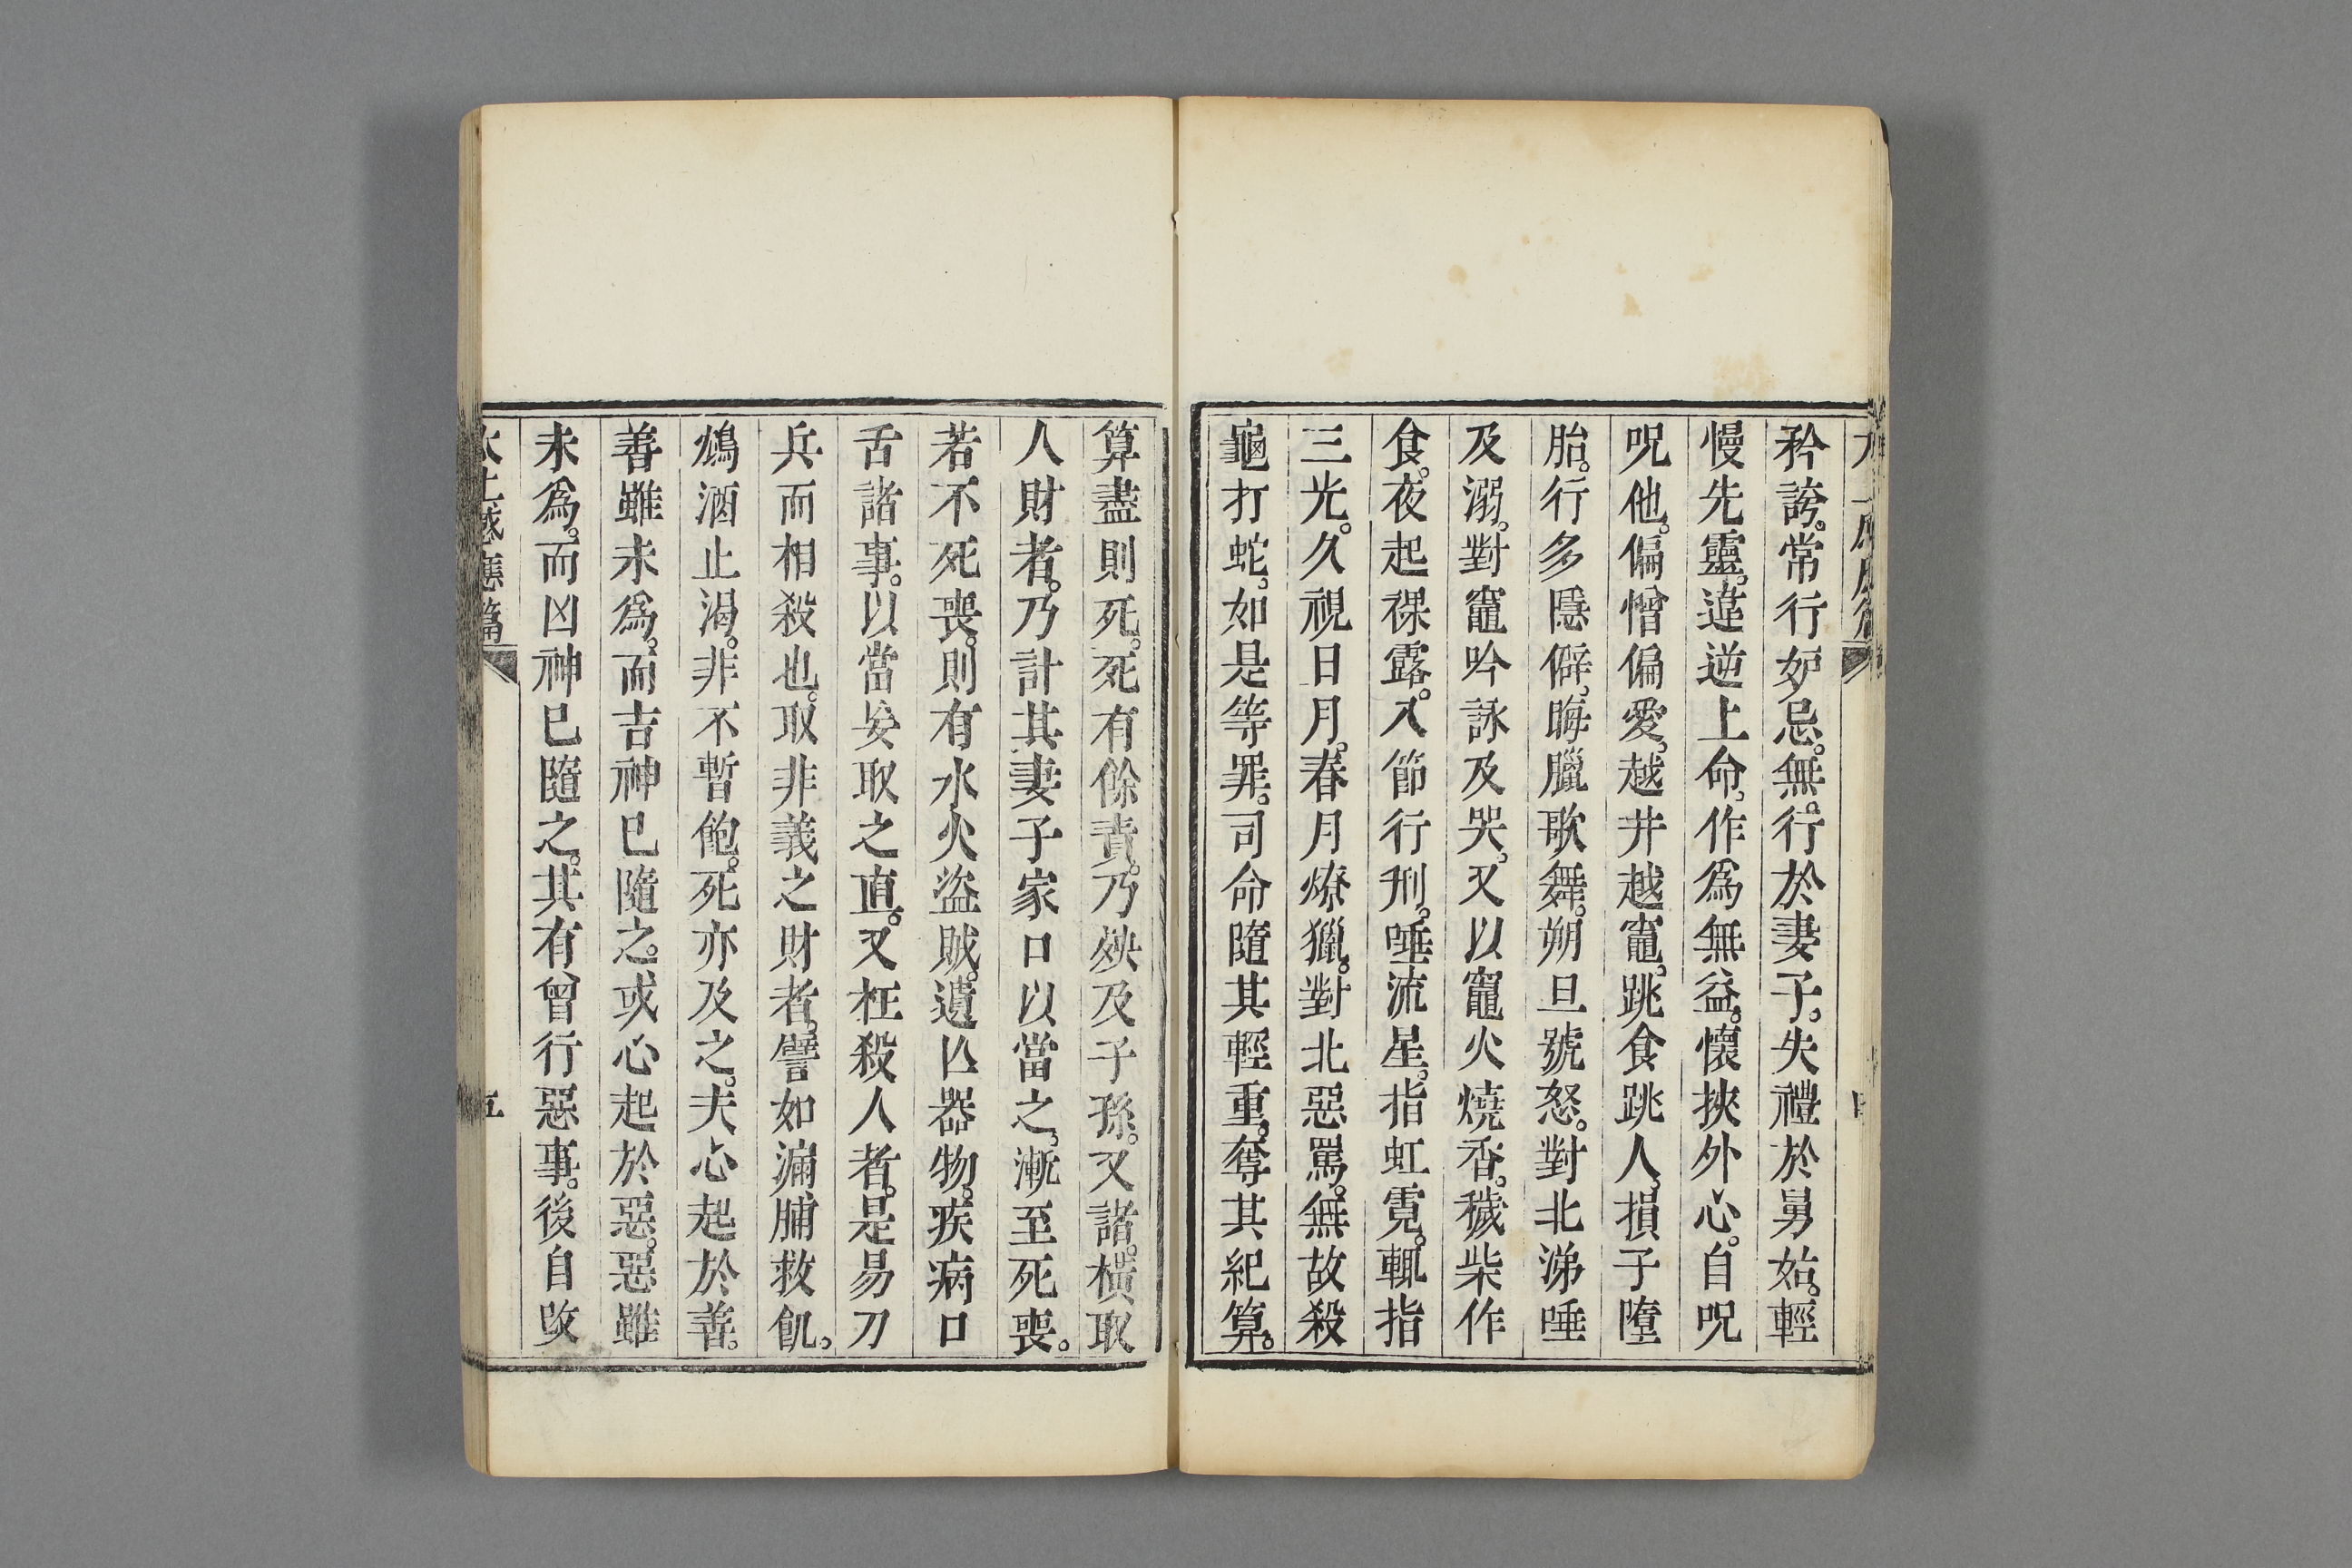 矜誇。常行妒忌。無。行於妻子。失禮於舅姑。輕
慢先靈。違逆上命。作爲無益。懷挾外心。自呪
呪他。偏憎偏愛。越井越竈。跳食跳人。損子墮
胎。行多隱僻。晦臘歌舞。朔旦號怒。對北涕唾
及溺。對竈吟詠及哭。又以竈火燒香。穢柴作
食。夜起裸露。八節行刑。唾流星。指虹霓。輒指
三光。久視日月。春月燎獵。對北惡罵。無故殺
龜打蛇。如是等罪。司命隨其輕重。奪其紀算。
算盡則死。死有餘責。乃殃及子孫。又諸。橫取
人財者。乃計其妻子家口以當之。漸至死喪。
若不死喪。則有水火盜賊。遺亾器物。疾病口
舌諸事。以當妄取之直。又枉殺人者。是易刀
兵而相殺也。取非義之財者。譬如漏脯救飢。
鴆酒止渴。非不暫飽。死亦及之。夫心起於善。
善雖未爲。而吉神已隨之。或心起於惡。惡雖
未爲。而凶神已隨之。其有曾行惡事。後自改
太上感應篇 五